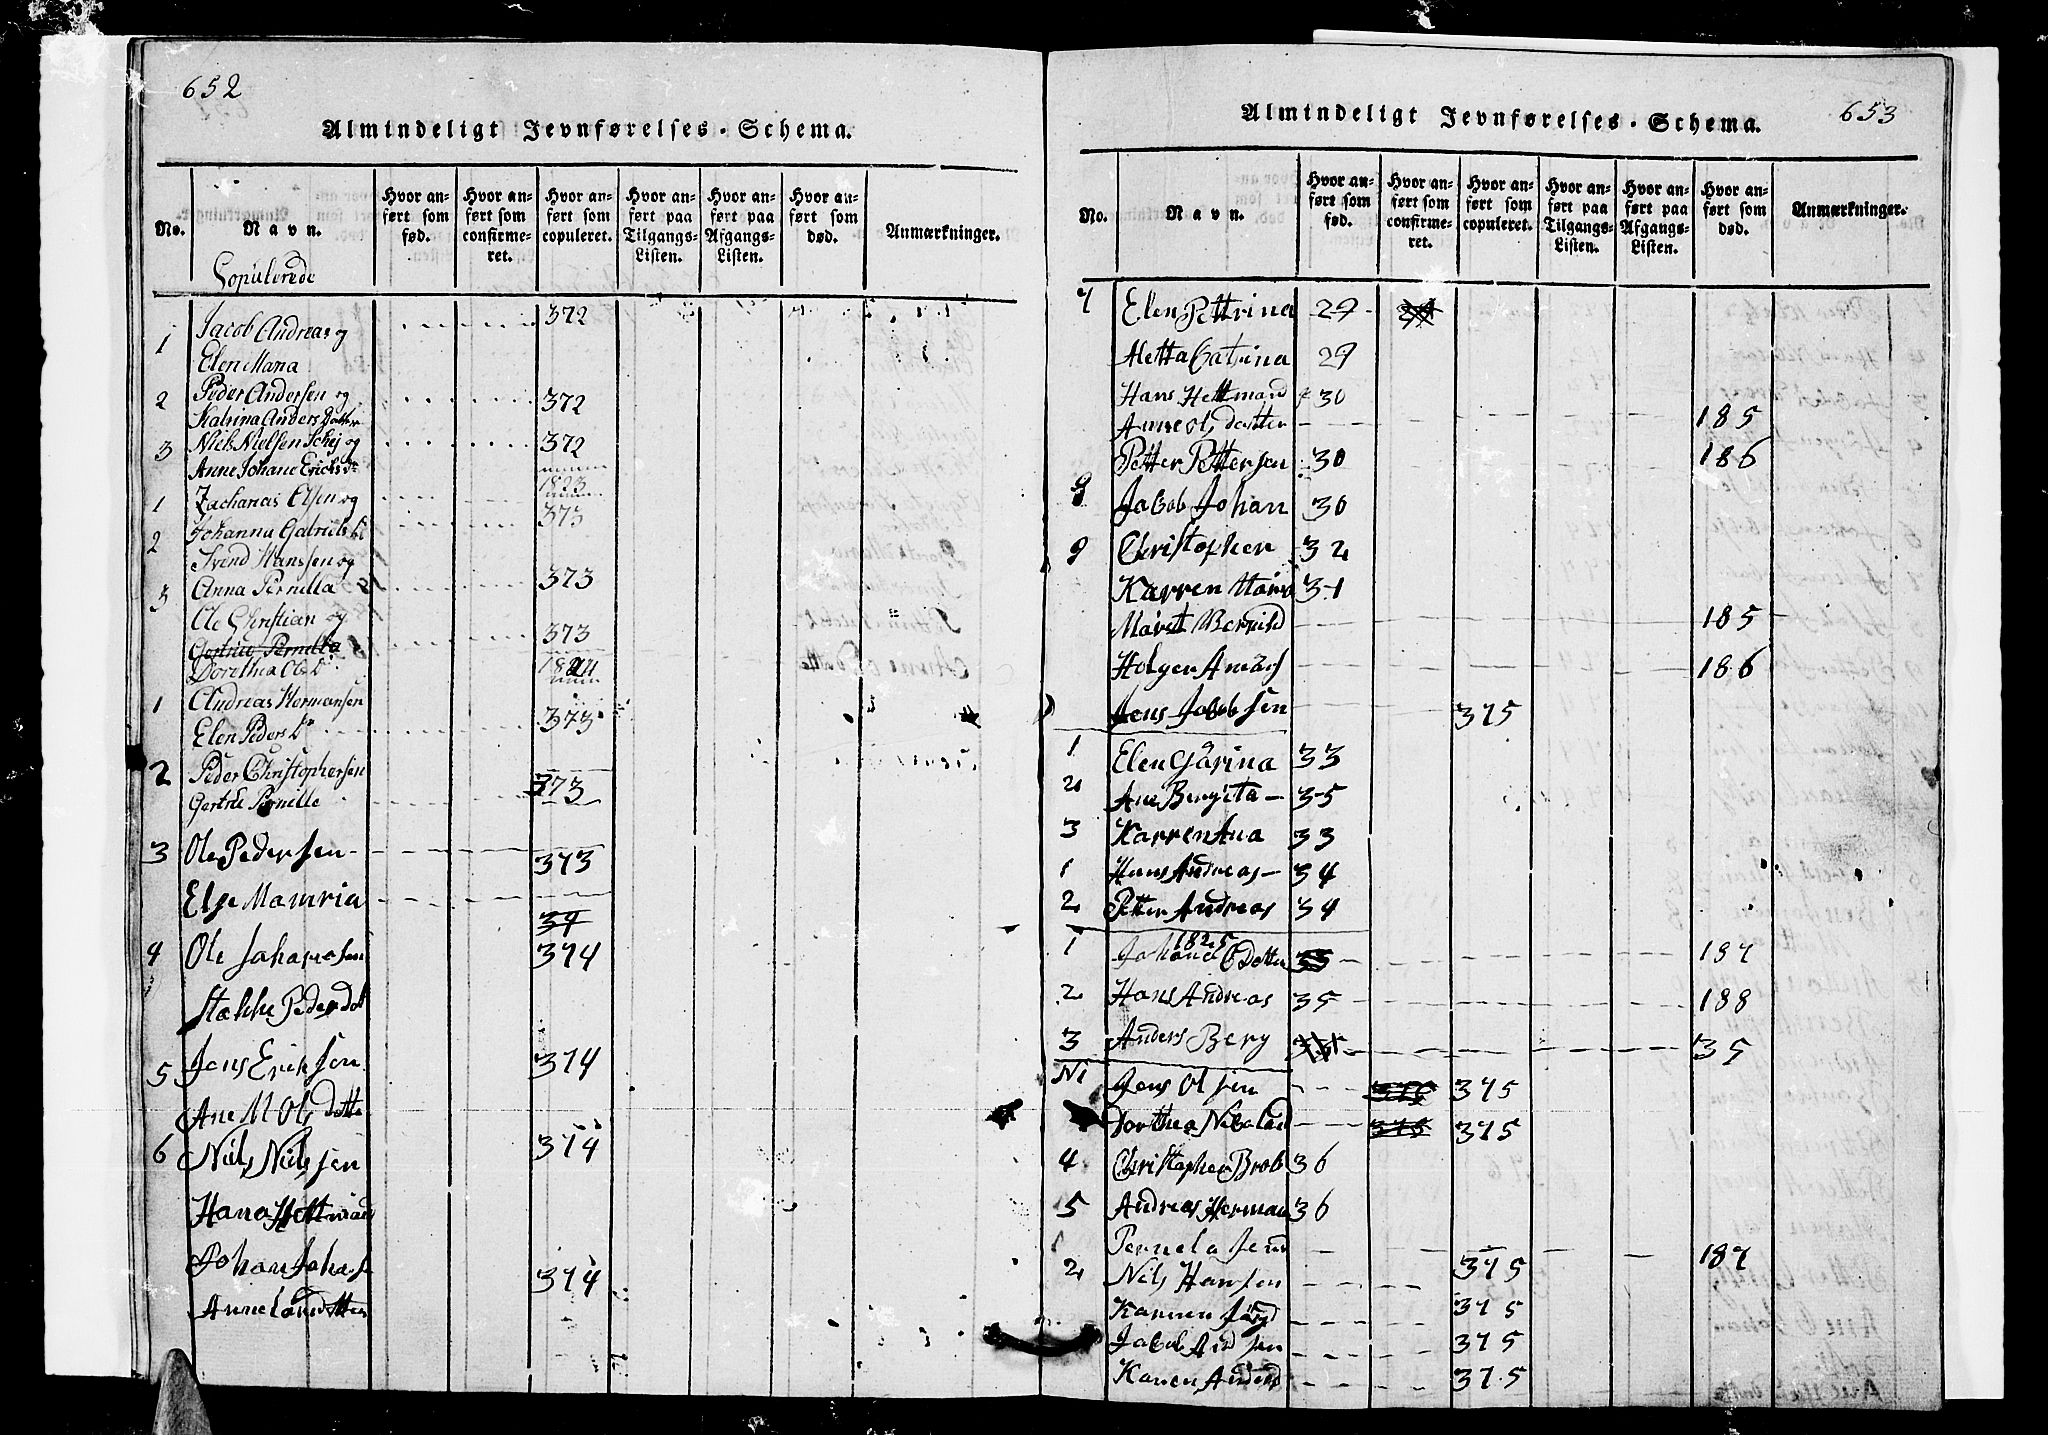 652
Almindeligt Jevnførelses-Schema.
No.
Navn.
Hvor anført som fød.
Hvor anført som confirmeret.
Hvor anført som copuleret.
Hvor anført paa Tilgangs-Listen.
Hvor anført paa Afgangs-Listen.
Hvor anført som død.
Anmærkninger.
Copulerede
1 Jacob Andreas og 372
Elen Maria
2 Peder Andersen og 372
Katrina Anders Datter
3 Niels Nielsen Schej og 372
Anne Johane Erichs Dr
1823
1 Zacharias Olsen og 373
Johanna Gabriels D
2 Svend Hanssen og
Anna Pernella 373
3 Ole Christian og
Gertrue Pernella 373
Dorethea Ols Dr
1824
1 Andreas Hermansen 373
Elen Peders Dr
2 Peder Christophersen 373
Gertrue Pernille
3 Ole Pedersen 373
Else Mamria
39
4 Ole Johansen 374
Peders dot
5 Jens Eriksen 374
Ane M Ols dotte
6 Nils Nilssen 374
Hana
Johan Johans 374
Anne
653
Almindeligt Jevnførelses-Schema.
No.
Navn.
Hvor anført som fød.
Hvor anført som confirmeret.
Hvor anført som copuleret.
Hvor anført paa Tilgangs-Listen.
Hvor anført paa Afgangs-Listen.
Hvor anført som død.
Anmærkninger.
7 Elen Pettrina 29 29
Aletta Catrina 29
Hans Hettmand 30
Anne Ols datter 185
Petter Pettersen 30 186
8 Jacob Johan 30
9 Christopher 32
Karren Maria 31
Maret Berrild 185
Holger 186
Jens Jakobsen 375
1 Elen Gårina 33
2 Ane Bergita 35
3 Karren Ana 33
1 Hans Andreas 34
2 Petter Andreas 34
1825
1 Johane O Datter 35 187
2 Hans Andreas 35 188
3 Anders Berg 35
N1 Jens Olsen 375 375
Dorthea Nikolai 375 375
4 Christopher Brob 36
5 Andreas Herman 36
Pernela Jens 187
2 Nils Hansen 375
Karren 375
Jakob Andsen 375
Karren Anders 375